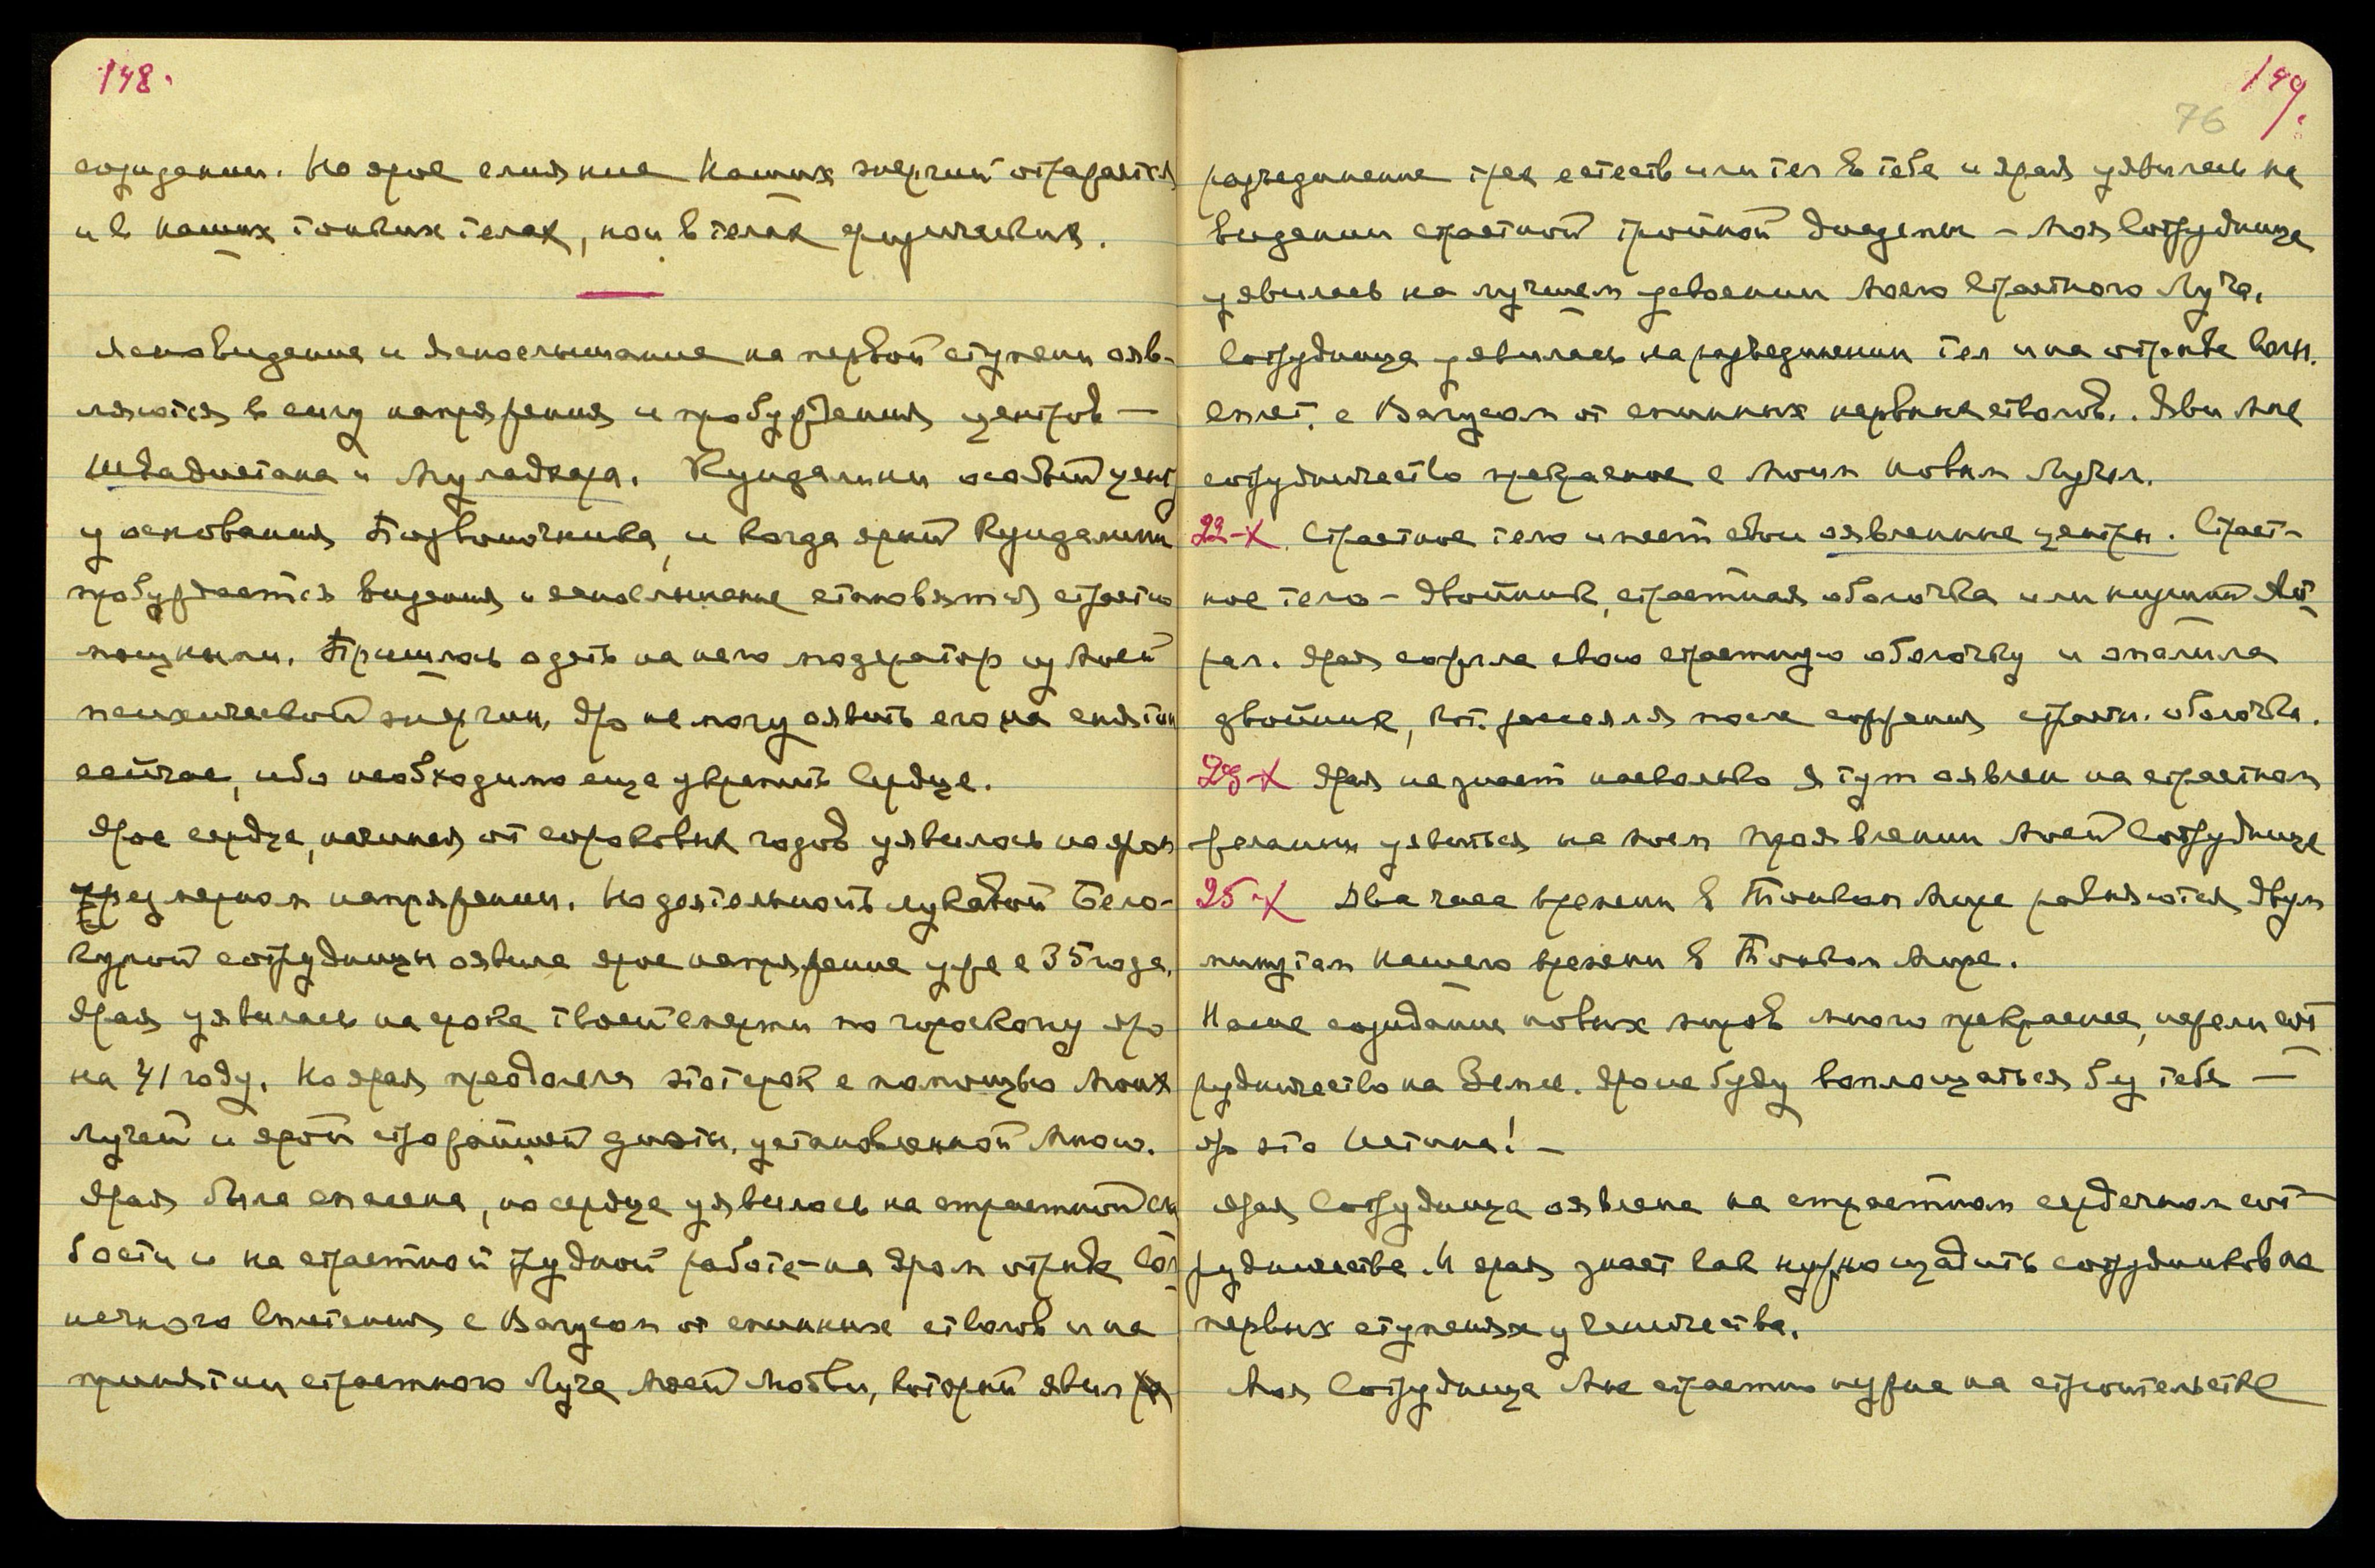 148.
созидании. Но ярое слияние Наших энергий отражается
и в наших тонких телах, но и в телах физических.
Ясновидение и яснослышание на первой ступени явв-
ляются в силу напряжения и пробуждения центров —
Швадистана и Муладхара. Кундалини особый центр
у основания Позвоночника, и когда ярый Кундалини
пробуждается видения и яснослышание становятся страстно
мощными. Пришлось одеть на него модератор из Моей
психической энергии. Яро не могу оявить его на снятии
сейчас, ибо необходимо еще укрепить Сердце.
Ярое сердце, начиная от сороковых годов уявилось на яром
чрезмерном напряжении. Но деятельность лукавой Бело-
курой сотрудницы оявила ярое напряжение уже с 35 года.
Ярая уявилась на сроке твоей смерти по гороскопу яро
на 41 году. Но ярая преодолела этот срок с помощью Моих
лучей и ярой строжайшей диэты, установленной Мною.
Ярая была спасена, но сердце уявилось на страстной сла
бости и на страстной трудной работе – на яром отрыве Сол
нечного Сплетения с Вагусом от спинных стволов и на
принятии страстного Луча Моей Любви, который явил
149.
76
разъединение трех естеств или тел в тебе и ярая уявилась на
видении страстной тройной Звезды – Моя Сотрудница
уявилась на лучшем усвоении Моего Страстного Луча.
Сотрудница уявилась на разъединении тел и на отрыве Солн.
сплет. с Вагусом от спинных нервных стволов. Яви Мне
сотрудничество прекрасное с Моим Новым Лучом.
22-X Страстное тело имеет свои оявленные центры. Страст-
ное тело – двойник, страстная оболочка или низший Аст
рал. Ярая сожгла свою страстную оболочку и опалила
двойник, кот. рассеялся после сожжения страстн. оболочки.
23-X Ярая не знает насколько Я тут оявлен на страстном
желании уявиться на моем проявлении Моей Сотруднице
25-X Два часа времени в Тонком Мире равняются двум
минутам нашего времени в Тонком Мире.
Наше созидание новых миров много прекраснее, нежели сот
рудничество на Земле. Яро не буду воплощаться без тебя —
яро это Истина! –
Ярая Сотрудница оявлена на страстном сердечном сот
рудничестве. И ярая знает как нужно щадить сотрудников на
первых ступенях ученичества.
Моя Сотрудница Мне страстно нужна на строительстве